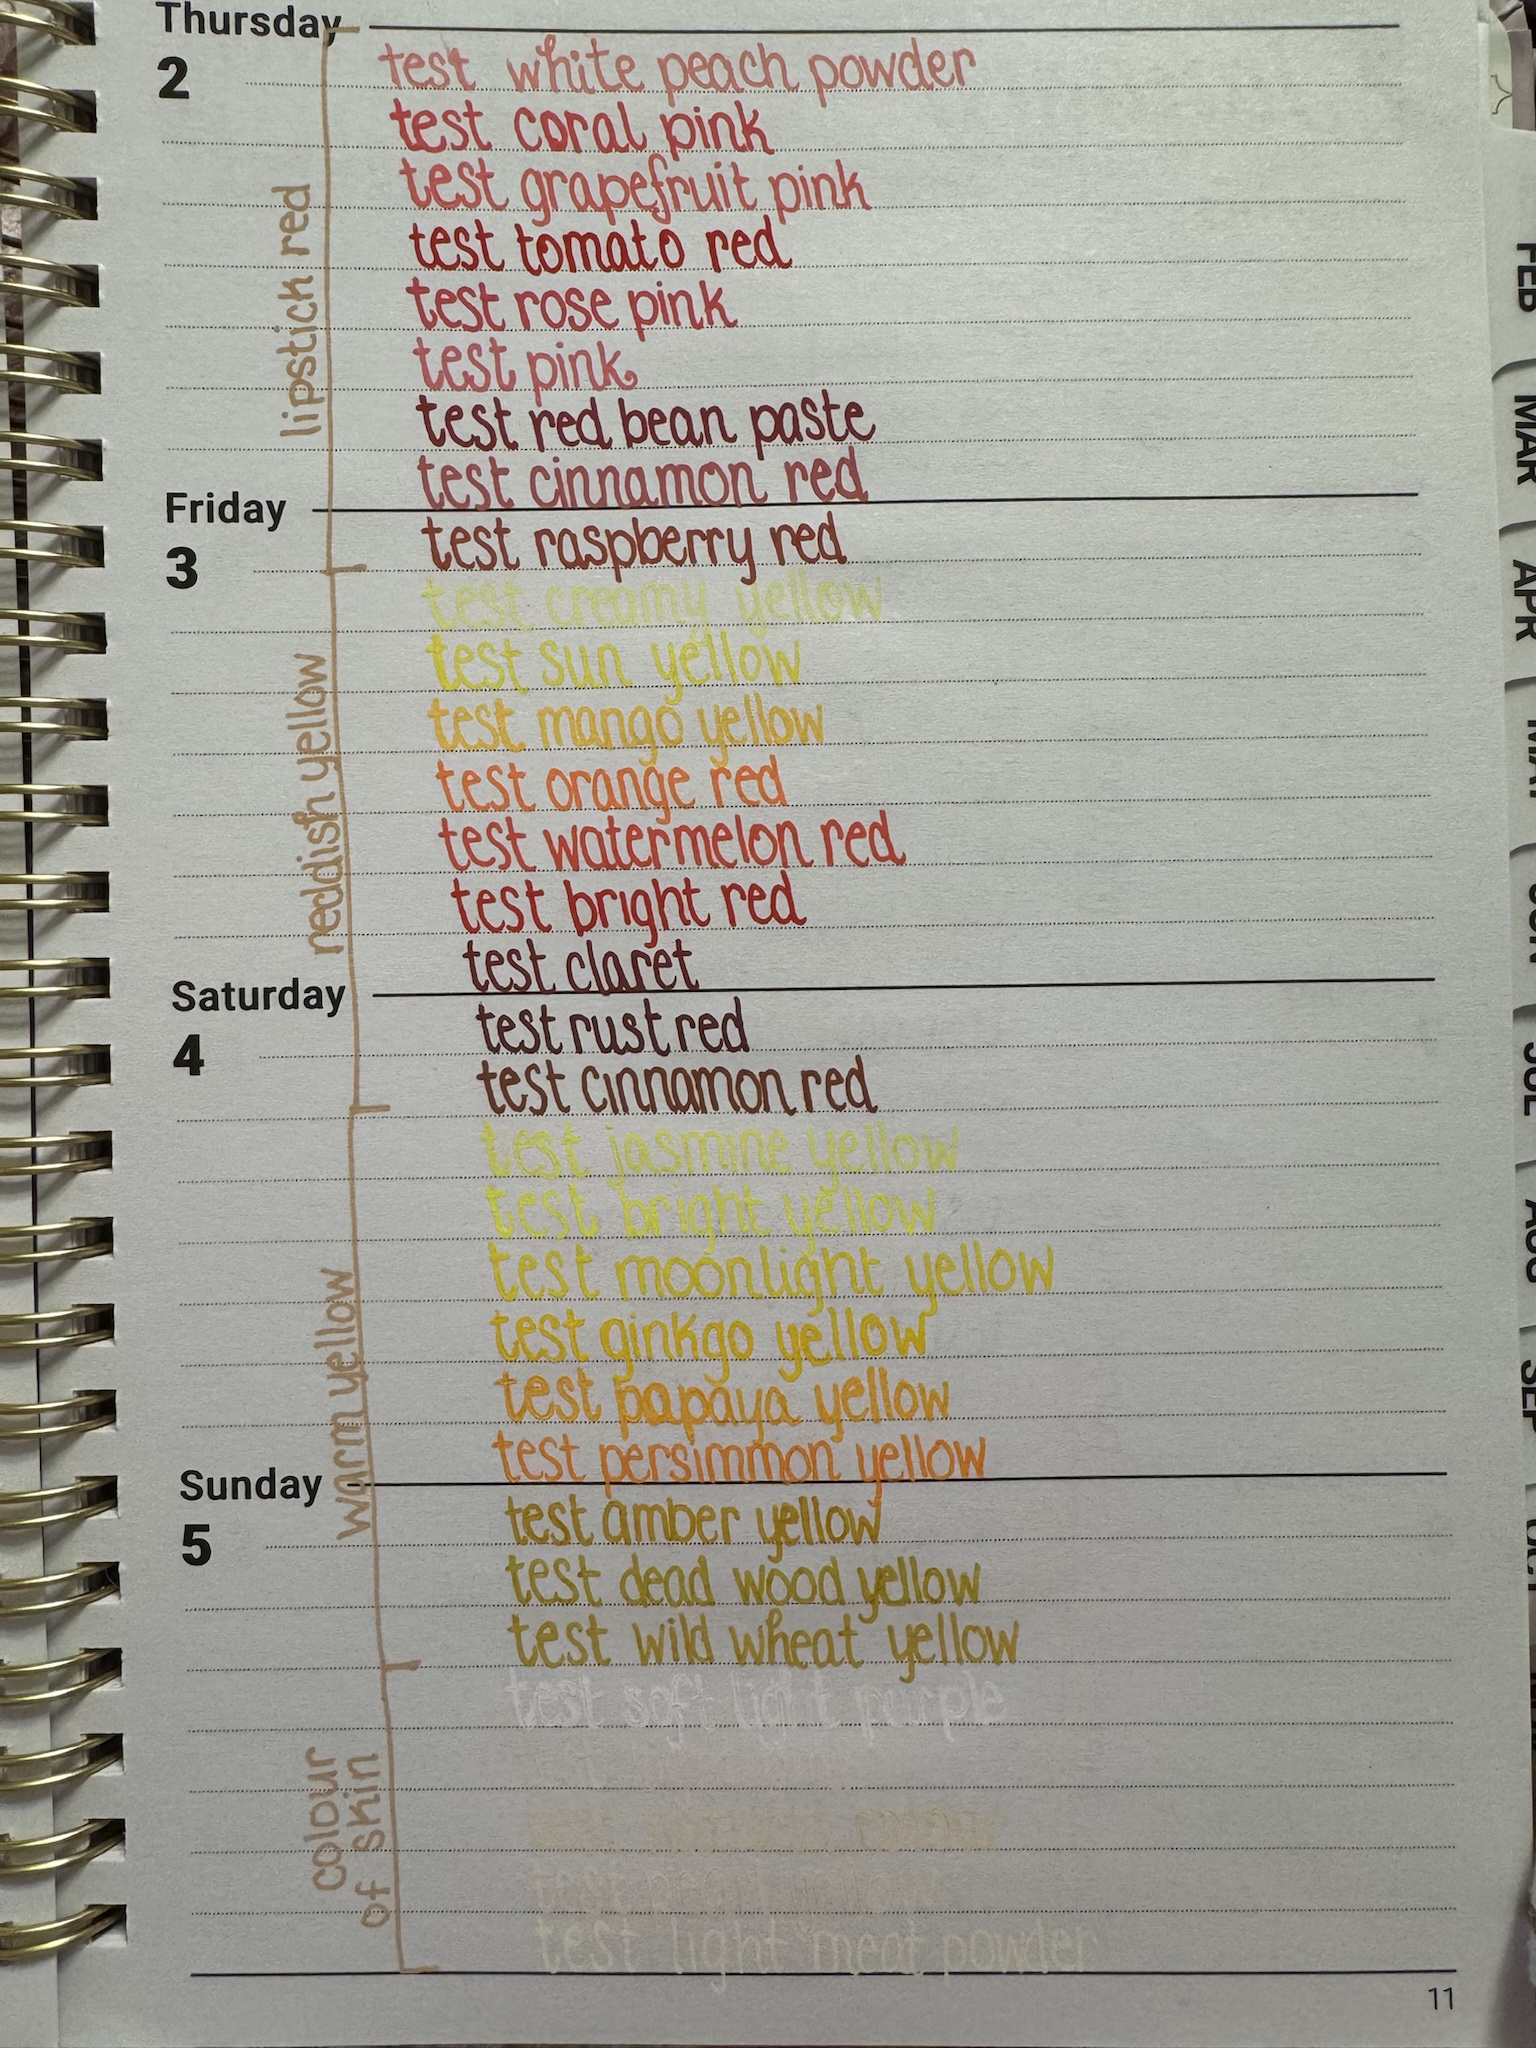 Thursday
2
test white peach powder
test coral pink
test grapefruit pink
test tomato red
test rose pink
test pink
test red bean paste
test cinnamon red
lipstick red
Friday
3
test raspberry red
test creamy yellow
test sun yellow
test mango yellow
test orange red
test watermelon red
test bright red
test claret
reddish yellow
Saturday
4
test rust red
test cinnamon red
test jasmine yellow
test bright yellow
test moonlight yellow
test ginkgo yellow
test papaya yellow
test persimmon yellow
warm yellow
Sunday
5
test amber yellow
test dead wood yellow
test wild wheat yellow
test soft light purple
test
test light meat powder
colour
of skin
11
FEB
MAR
APR
MAY
JUN
JUL
AUG
SEP
OCT